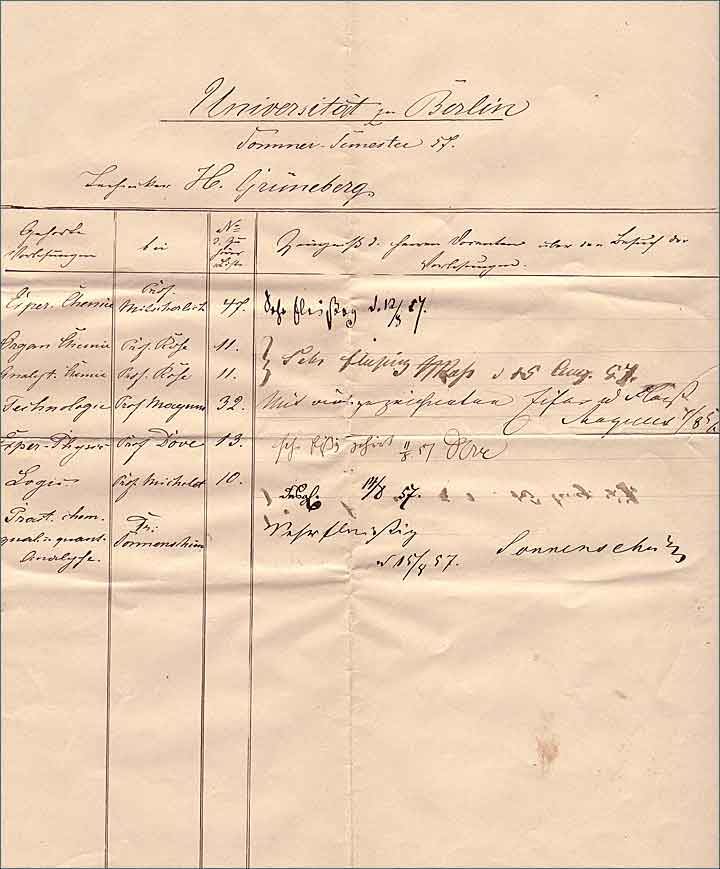 Universität zu Berlin
Sommer-Semester 57.
Techniker H. Grüneberg
Gehörte Vorlesungen
bei
No d. Zu
Zeugniß d. Herren Docenten über den Besuch der
Vorlesungen.
Exper. Chemie Prof. Mitscherlich 47. Sehr fleißig d. 12/8 57.
Organ Chemie Prof. Rose 11.
Analyt. Chemie Prof. Rose 11. Sehr fleißig Rose d 15 Aug. 57.
Technologie Prof Magnus 32. Mit ausgezeichneten Eifer u Fleiß
Magnus
Exper. Physik Prof Dove 13. 11/8 57 Dove
Logic Prof. Michelet 10. Desgl. 14/8 57.
Pract. chem.
qual. u. quant. Analyse. Dr. Sonnenschein Sehr fleissig
d 15/8 57. Sonnenschein